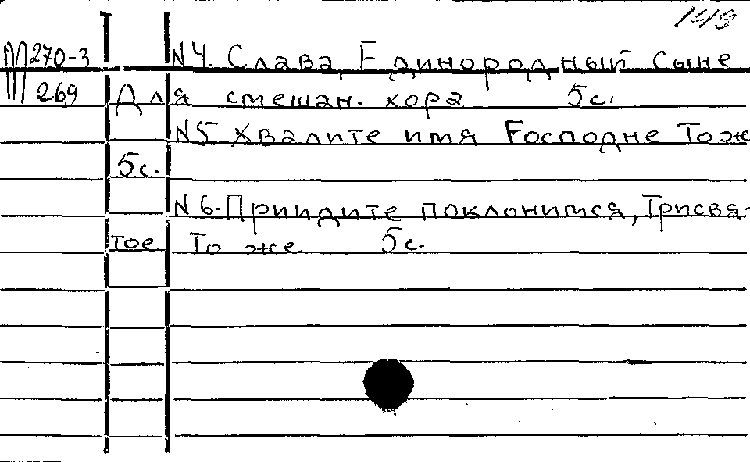 149
270-3 N4. Слава, Единородный Сыне
269 Для смешан. хора 5с.
N5 Хвалите имя Господне То ж
5с.
N6. Приидите поклонимся, Трисвя-
тое То же 5с.